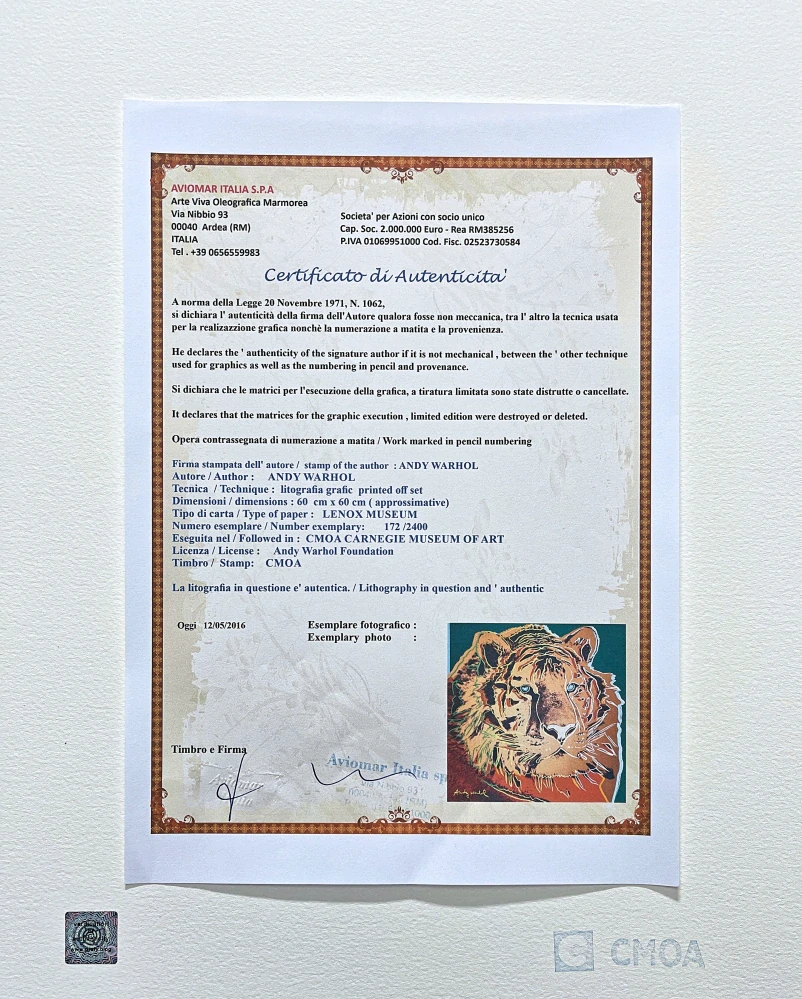 AVIOMAR ITALIA S.P.A
Arte Viva Oleografica Marmorea
Via Nibbio 93
00040 Ardea (RM)
ITALIA
Tel . +39 0656559983
Societa' per Azioni con socio unico
Cap. Soc. 2.000.000 Euro - Rea RM385256
P.IVA 01069951000 Cod. Fisc. 02523730584
Certificato di Autenticita'
A norma della Legge 20 Novembre 1971, N. 1062,
si dichiara l' autenticità della firma dell'Autore qualora fosse non meccanica, tra l' altro la tecnica usata
per la realizazzione grafica nonchè la numerazione a matita e la provenienza.
He declares the ' authenticity of the signature author if it is not mechanical , between the ' other technique
used for graphics as well as the numbering in pencil and provenance.
Si dichiara che le matrici per l'esecuzione della grafica, a tiratura limitata sono state distrutte o cancellate.
It declares that the matrices for the graphic execution , limited edition were destroyed or deleted.
Opera contrassegnata di numerazione a matita / Work marked in pencil numbering
Firma stampata dell' autore / stamp of the author : ANDY WARHOL
Autore / Author : ANDY WARHOL
Tecnica / Technique : litografia grafic printed off set
Dimensioni / dimensions : 60 cm x 60 cm ( approssimative)
Tipo di carta / Type of paper : LENOX MUSEUM
Numero esemplare / Number exemplary: 172 /2400
Eseguita nel / Followed in : CMOA CARNEGIE MUSEUM OF ART
Licenza / License : Andy Warhol Foundation
Timbro / Stamp: CMOA
La litografia in questione e' autentica. / Lithography in question and ' authentic
Oggi 12/05/2016
Esemplare fotografico :
Exemplary photo :
Timbro e Firma
Aviomar Italia sp
Via Nibbio 93
Aviomar
CMOA